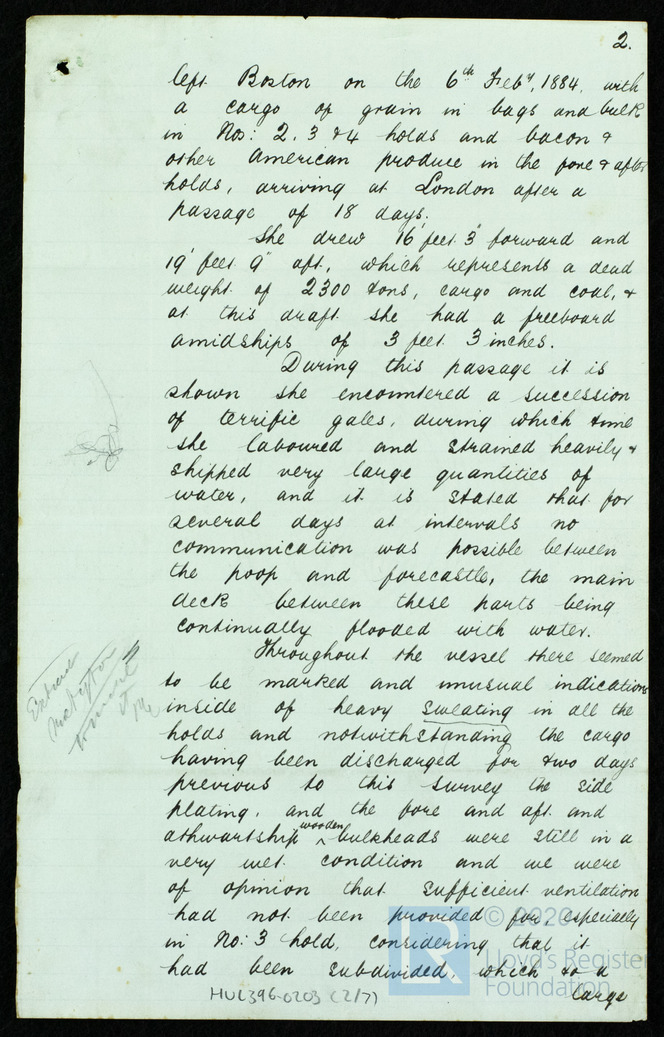 2.
left Boston on the 6th Feby, 1884, with
a cargo of grain in bags and bulk
in Nos: 2. 3 & 4 holds and bacon &
other American produce in the fore & after
holds, arriving at London after a
passage of 18 days.
She drew 16' feet 3" forward and
19' feet 9" aft, which represents a dead
weight of 2300 tons, cargo and coal, &
at this draft she had a freeboard
amidships of 3 feet 3 inches.
During this passage it is
shown she encountered a succession
of terrific gales, during which time
she laboured and strained heavily &
shipped very large quantities of
water, and it is stated that for
several days at intervals no
communication was possible between
the poop and forecastle, the main
deck between these parts being
continually flooded with water.
Throughout the vessel there seemed
to be marked and unusual indications
inside of heavy sweating in all the
holds and notwithstanding the cargo
having been discharged for two days
previous to this survey the side
plating, and the fore and aft and
athwartship wooden bulkheads were still in a
very wet condition and we were
of opinion that sufficient ventilation
had not been provided for, especially
in No: 3 hold, considering that it
had been subdivided, which to a
large
HUL396-0203 (2/7)
© 2020
Lloyd's Register
Foundation